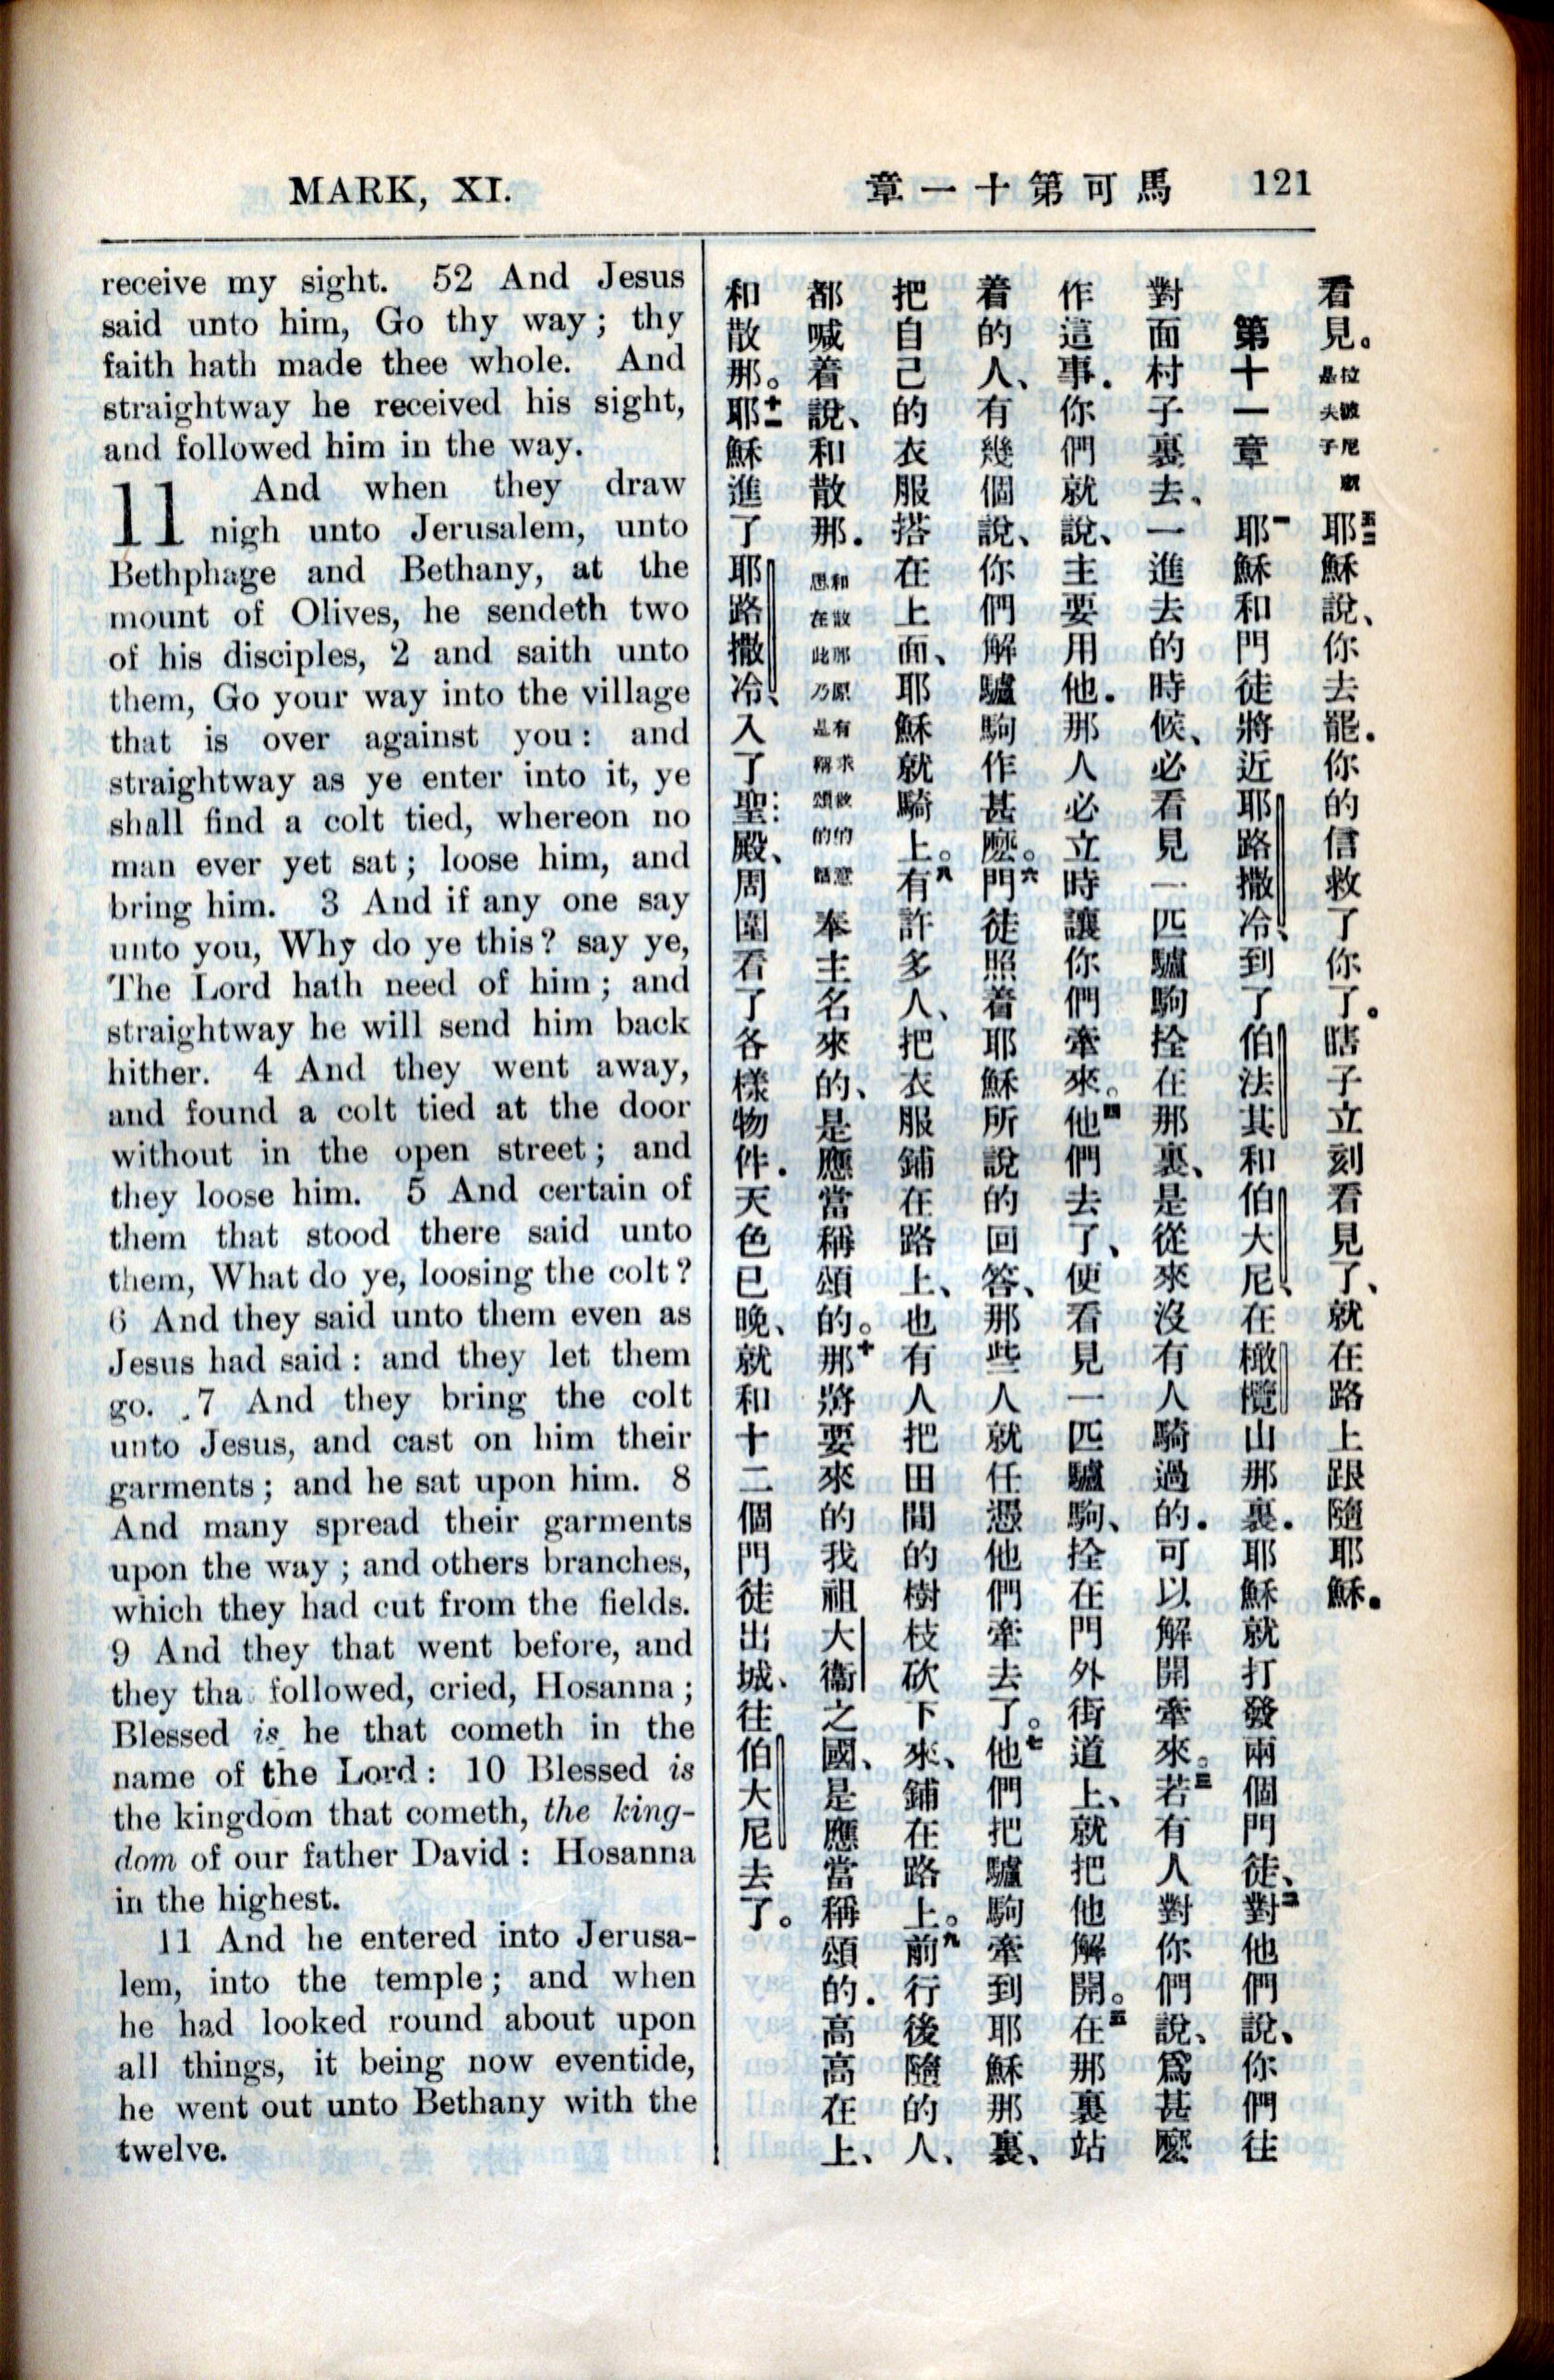 MARK, XI.
章一十第可馬
121
receive my sight. 52 And Jesus
said unto him, Go thy way; thy
faith hath made thee whole. And
straightway he received his sight,
and followed him in the way.
11 And when they draw
nigh unto Jerusalem, unto
Bethphage and Bethany, at the
mount of Olives, he sendeth two
of his disciples, 2 and saith unto
them, Go your way into the village
that is over against you: and
straightway as ye enter into it, ye
shall find a colt tied, whereon no
man ever yet sat; loose him, and
bring him. 3 And if any one say
unto you, Why do ye this? say ye,
The Lord hath need of him; and
straightway he will send him back
hither. 4 And they went away,
and found a colt tied at the door
without in the open street; and
they loose him. 5 And certain of
them that stood there said unto
them, What do ye, loosing the colt?
6 And they said unto them even as
Jesus had said: and they let them
go. 7 And they bring the colt
unto Jesus, and cast on him their
garments; and he sat upon him. 8
And many spread their garments
upon the way; and others branches,
which they had cut from the fields.
9 And they that went before, and
they tha followed, cried, Hosanna;
Blessed is he that cometh in the
name of the Lord: 10 Blessed is
the kingdom that cometh, the king-
dom of our father David: Hosanna
in the highest.
11 And he entered into Jerusa-
lem, into the temple; and when
he had looked round about upon
all things, it being now eventide,
he went out unto Bethany with the
twelve.
看見。拉波尼是夫子 五二耶穌說、你去罷．你的信救了你了。瞎子立刻看見了、就在路上跟隨耶穌。
第十一章 一耶穌和門徒將近耶路撒冷、到了伯法其和伯大尼、在橄欖山那裏．耶穌就打發兩個門徒、二對他們說、你們往
對面村子裏去、一進去的時候、必看見一匹驢駒拴在那裏、是從來沒有人騎過的．可以解開牽來。三若有人對你們說、爲甚麽
作這事．你們就說、主要用他．那人必立時讓你們牽來。四他們去了、便看見一匹驢駒、拴在門外街道上、就把他解開。五在那裏站
着的人、有幾個說、你們解驢駒作甚麽。六門徒照着耶穌所說的回答、那些人就任憑他們牽去了。七他們把驢駒牽到耶穌那裏、
把自己的衣服搭在上面、耶穌就騎上。八有許多人、把衣服鋪在路上、也有人把田間的樹枝砍下來、鋪在路上。九前行後隨的人、
都喊着說、和散那．和散那原有求救的意思在此乃是稱頌的話 奉主名來的、是應當稱頌的。十那將要來的我祖大衞之國、是應當稱頌的．高高在上、
和散那。十一耶穌進了耶路撒冷、入了聖殿、周圍看了各樣物件．天色已晚、就和十二個門徒出城、往伯大尼去了。